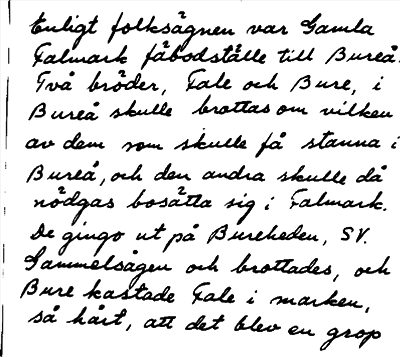 Enligt folksägnen var Gamla
Falmark fäbodställe till Bureå.
Två bröder, Fale och Bure, i
Bureå skulle brottas om vilken
av dem som skulle få stanna i
Bureå, och den andra skulle då
nödgas bosätta sig i Falmark.
De gingo ut på Bureheden, SV.
Gammelsågen och brottades, och
Bure kastade Fale i marken,
så hårt, att det blev en grop